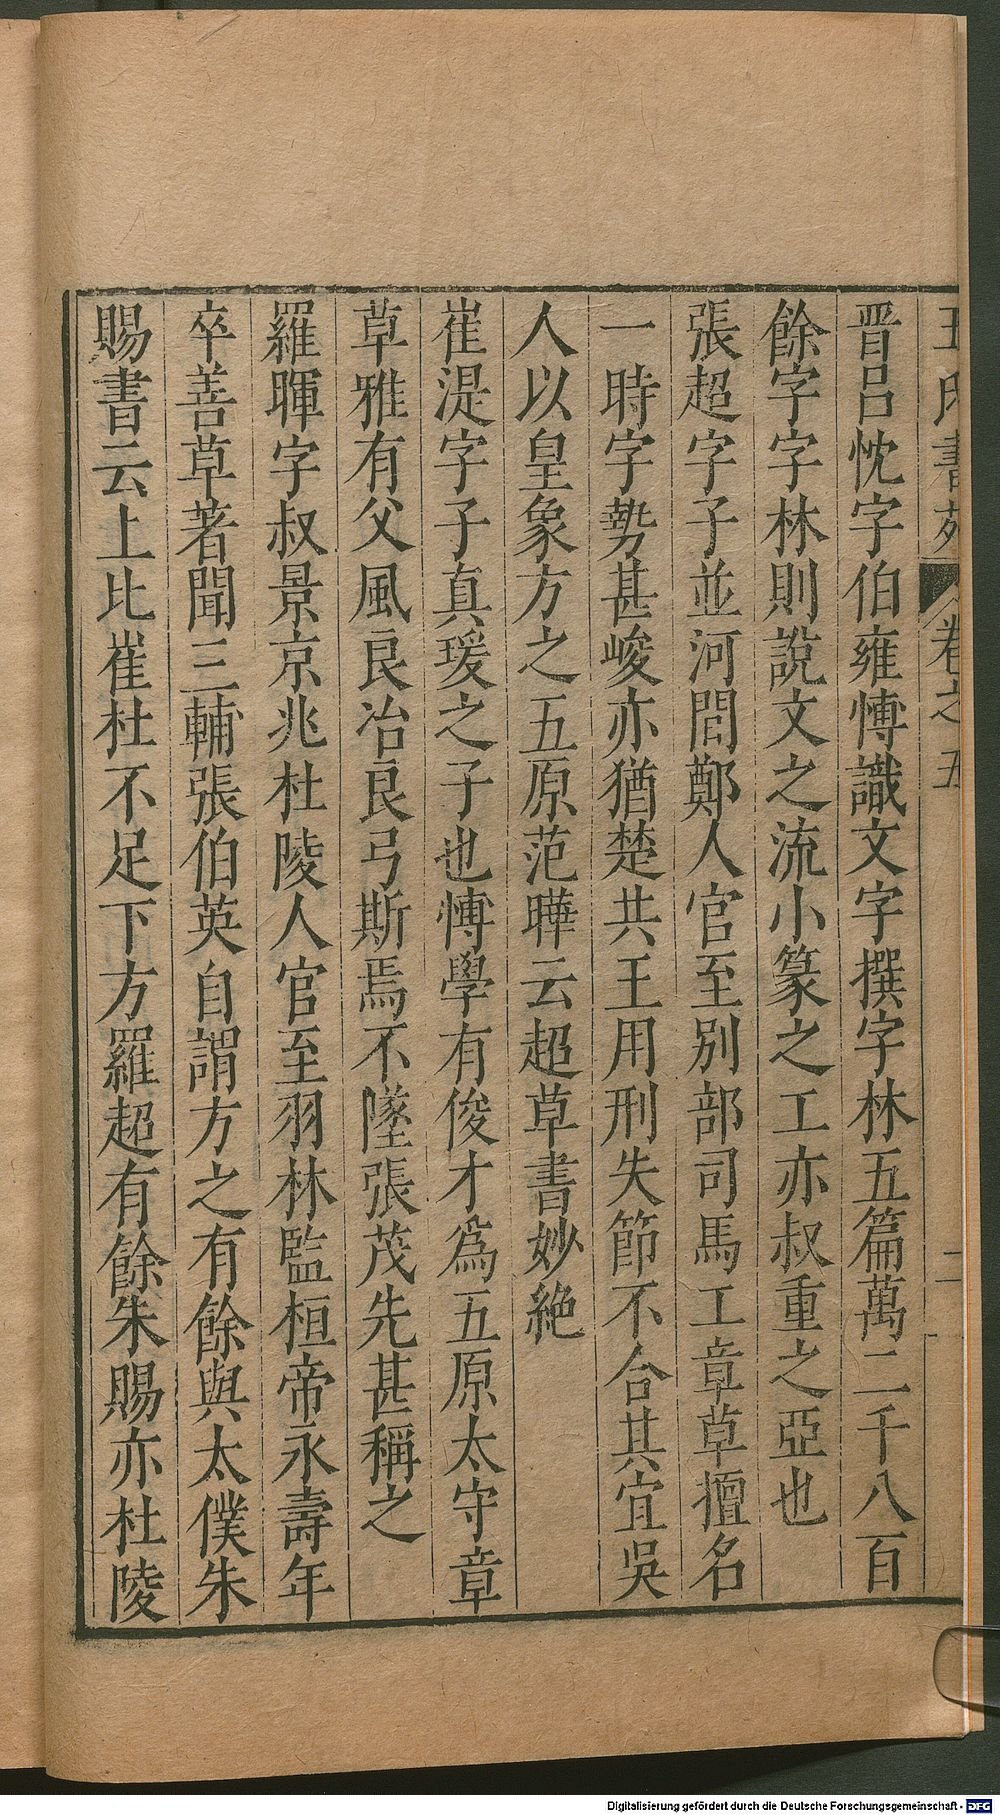 王氏書苑 卷之五 二
晉呂忱字伯雍愽識文字撰字林五篇萬二千八百
餘字字林則說文之流小篆之工亦叔重之亞也
張超字子並河間鄭人官至别部司馬工章草擅名
一時字勢甚峻亦猶楚共王用刑失節不合其宜吳
人以皇象方之五原范曄云超草書妙絶
崔湜字子真瑗之子也愽學有俊才為五原太守章
草雅有父風良冶良弓斯焉不墜張茂先甚稱之
羅暉字叔景京兆杜陵人官至羽林監桓帝永壽年
卒善草著聞三輔張伯英自謂方之有餘與太僕朱
賜書云上比崔杜不足下方羅超有餘朱賜亦杜陵
Digitalisierung gefördert durch die Deutsche Forschungsgemeinschaft - DFG